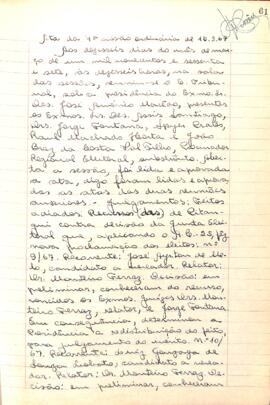 61
Ata da 7ª sessão ordinária de 16.3.67
Aos dezesseis dias do mês de mar-
ço de um mil novecentos e sessenta
e sete, às dezesseis horas, na sala
das sessões, reuniu-se o E. Tribu-
nal, sob a presidência do Exmo. Sr.
Des. José Américo Macêdo, presentes
os Exmos. Srs. Des. Assis Santiago,
Drs. Jorge Fontana,
Raul Machado Horta e João
Braz da Costa Val Filho, Procurador
Regional Eleitoral, substituto. Aber-
ta a sessão, foi lida e aprovada
a ata, digo foram lidas e aprova-
das as atas das duas reuniões
anteriores. - Julgamentos: Feitos
adiados: Recursos (dos) de Pitan-
gui contra decisão da Junta Elei-
toral que, aplicando o A.C. 23, fez
nova proclamação dos eleitos: nº
9/67. Recorrente: José de Me-
lo, candidato a vereador. Relator:
Dr. Monteiro Ferraz. Decisão: em
preliminar, conheceram do recurso,
vencidos os Exmos. Juízes Drs. Mon-
teiro Ferraz, relator, e Jorge Fontana.
Em consequência, determinou a
Presidência a redistribuição do feito,
para julgamento do mérito. Nº 10/
67. Recorrente: Luiz Gonzaga de
Souza Lobato, candidato a verea-
dor. Relator: Dr. Monteiro Ferraz. De-
cisão: em preliminar, conheceram